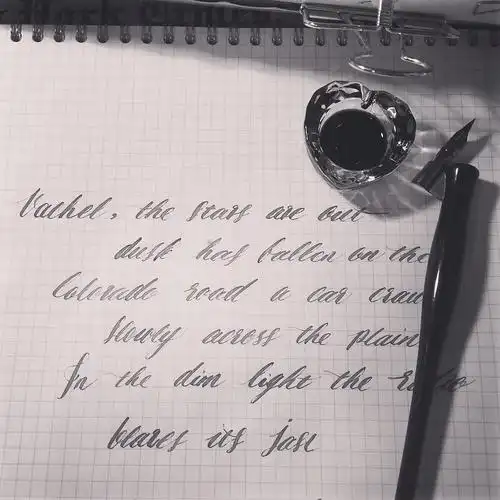 Vachel, the stars are out
dusk has fallen on the
Colorado road a car craw
slowly across the plain
In the dim light the radio
blares its jazz